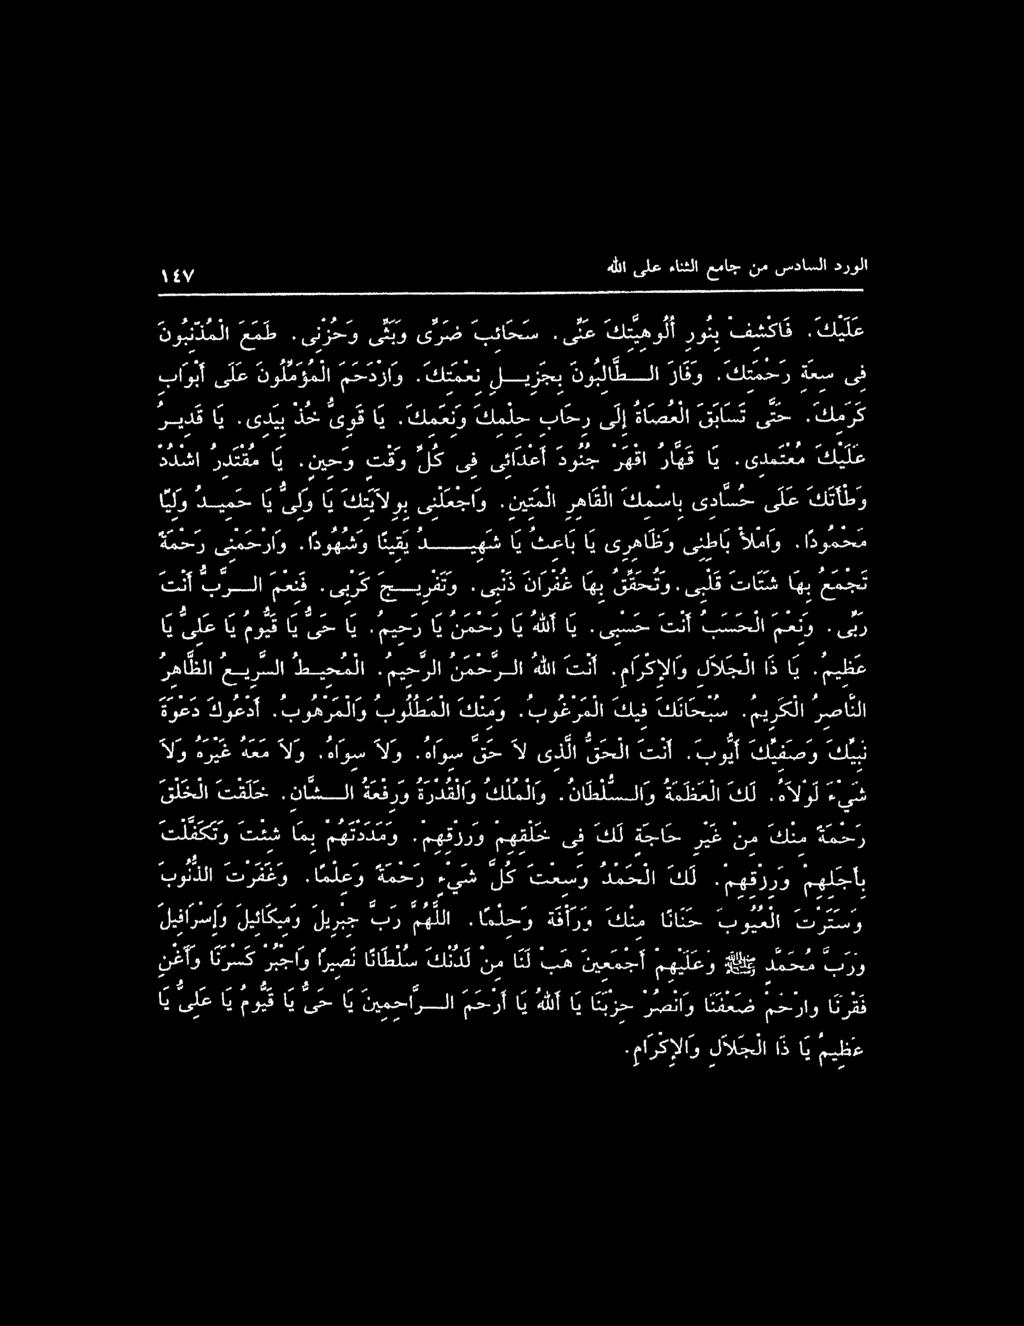 الورد السادس من جامع الثناء على الله
١٤٧
عَلَيْكَ. فَاكْشِفْ بِنُورِ أُلُوهِيَّتِكَ عَنِّى. سَحَائِبَ ضَرِّى وَبَثِّى وَحُزْنِى. طَمَعَ الْمُذْنِبُونَ
فِى سِعَةِ رَحْمَتِكَ. وَفَازَ الـطَّالِبُونَ بِجَزِيـلِ نِعْمَتِكَ. وَازْدَحَمَ الْمُؤَمِّلُونَ عَلَى أَبْوَابِ
كَرَمِكَ. حَتَّى تَسَابَقَ الْعُصَاةُ إِلَى رِحَابِ حِلْمِكَ وَنِعَمِكَ. يَا قَوِىُّ خُذْ بِيَدِى. يَا قَدِيـرُ
عَلَيْكَ مُعْتَمَدِى. يَا قَهَّارُ اقْهَرْ جُنُودَ أَعْدَائِى فِى كُلِّ وَقْتٍ وَحِينٍ. يَا مُقْتَدِرُ اشْدُدْ
وَطْأَتَكَ عَلَى حُسَّادِى بِاسْمِكَ الْقَاهِرِ الْمَتِينِ. وَاجْعَلْنِى بِوِلاَيَتِكَ يَا وَلِىُّ يَا حَمِيـدُ وَلِيًّا
مَحْمُودًا. وَامْلأْ بَاطِنِى وَظَاهِرِى يَا بَاعِثُ يَا شَهِيـدُ يَقِينًا وَشُهُودًا. وَارْحَمْنِى رَحْمَةً
تَجْمَعُ بِهَا شَتَاتَ قَلْبِى. وَتُحَقِّقُ بِهَا غُفْرَانَ ذَنْبِى. وَتَفْرِيـجَ كَرْبِى. فَنِعْمَ الـرَّبُّ أَنْتَ
رَبِّى. وَنِعْمَ الْحَسَبُ أَنْتَ حَسْبِى. يَا أَللهُ يَا رَحْمَنُ يَا رَحِيمُ. يَا حَىُّ يَا قَيُّومُ يَا عَلِىُّ يَا
عَظِيمُ. يَا ذَا الْجَلاَلِ وَالإِكْرَامِ. أَنْتَ اللهُ الـرَّحْمَنُ الرَّحِيمُ. الْمُحِيـطُ السَّرِيـعُ الظَّاهِرُ
النَّاصِرُ الْكَرِيمُ. سُبْحَانَكَ فِيكَ الْمَرْغُوبُ. وَمِنْكَ الْمَطْلُوبُ وَالْمَرْهُوبُ. أَدْعُوكَ دَعْوَةَ
نَبِيِّكَ وَصَفِيِّكَ أَيُّوبَ. أَنْتَ الْحَقُّ الَّذِى لاَ حَقَّ سِوَاهُ. وَلاَ سِوَاهُ. وَلاَ مَعَهُ غَيْرَهُ وَلاَ
شَىْءَ لَوْلاَهُ. لَكَ الْعَظَمَةُ وَالـسُّلْطَانُ. وَالْمُلْكُ وَالْقُدْرَةُ وَرِفْعَةُ الـشَّانِ. خَلَقْتَ الْخَلْقَ
رَحْمَةً مِنْكَ مِنْ غَيْرِ حَاجَةٍ لَكَ فِى خَلْقِهِمْ وَرِزْقِهِمْ. وَمَدَدْتَهُمْ بِمَا شِئْتَ وَتَكَفَّلْتَ
بِأَجَلِهِمْ وَرِزْقِهِمْ. لَكَ الْحَمْدُ وَسِعْتَ كُلَّ شَىْءٍ رَحْمَةً وَعِلْمًا. وَغَفَرْتَ الذُّنُوبَ
وَسَتَرْتَ الْعُيُوبَ حَنَانًا مِنْكَ وَرَأْفَةً وَحِلْمًا. اللَّهُمَّ رَبَّ جِبْرِيلَ وَمِيكَائِيلَ وَإِسْرَافِيلَ
وَرَبَّ مُحَمَّدٍ ﷺ وَعَلَيْهِمْ أَجْمَعِينَ هَبْ لَنَا مِنْ لَدُنْكَ سُلْطَانًا نَصِيرًا وَاجْبُرْ كَسْرَنَا وَأَغْنِ
فَقْرَنَا وارْحَمْ ضَعْفَنَا وَانْصُرْ حِزْبَنَا يَا أَللهُ يَا أَرْحَمَ الـرَّاحِمِينَ يَا حَىُّ يَا قَيُّومُ يَا عَلِىُّ يَا
عَظِيمُ يَا ذَا الْجَلاَلِ وَالإِكْرَامِ.